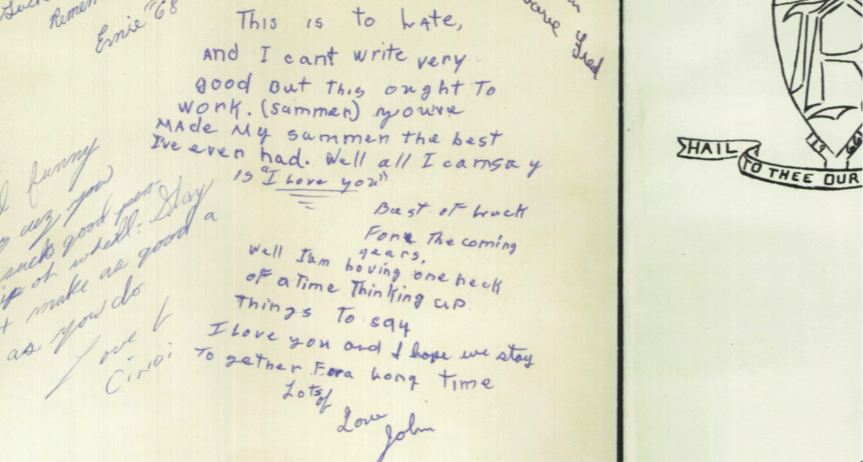 Remem
Ernie "68
Fred
This is to Late,
and I cant write very
good But this ought To
work. (summer) youve
Made My summer the best
I've even had. Well all I cansay
is "I Love you"
Best of Luck
For The coming
years,
Well I am having one heck
of a Time Thinking up
Things To say
I Love you and I hope we stay
To gether For a Long Time
Lots of
Love
John
funny
cuz you
such good pen-
of whell: Stay
+ make as good a
as you do
Love
Cindi
HAIL
TO THEE OUR